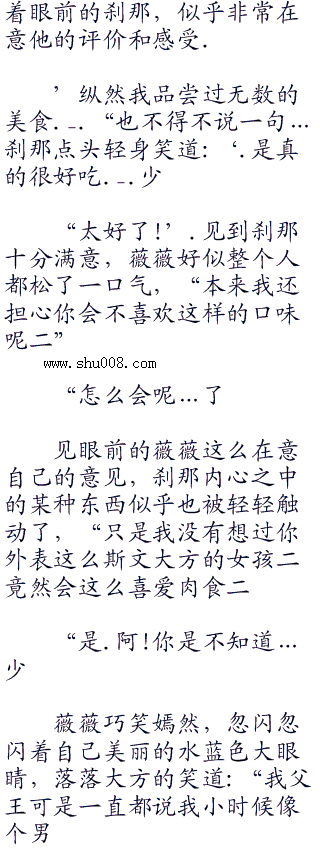 着眼前的刹那，似乎非常在
意他的评价和感受.
’纵然我品尝过无数的
美食._.“也不得不说一句…
刹那点头轻身笑道:‘.是真
的很好吃._.少
“太好了!’.见到刹那
十分满意，薇薇好似整个人
都松了一口气，“本来我还
担心你会不喜欢这样的口味
呢二”
www.shu008.com
“怎么会呢…了
见眼前的薇薇这么在意
自己的意见，刹那内心之中
的某种东西似乎也被轻轻触
动了，“只是我没有想过你
外表这么斯文大方的女孩二
竟然会这么喜爱肉食二
“是.阿!你是不知道…
少
薇薇巧笑嫣然，忽闪忽
闪着自己美丽的水蓝色大眼
睛，落落大方的笑道:“我父
王可是一直都说我小时候像
个男